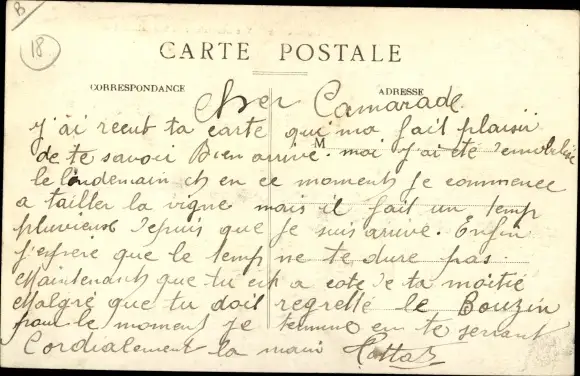 B
18
CARTE POSTALE
CORRESPONDANCE
ADRESSE
Cher Camarade.
J'ai recut ta carte qui ma fait plaisir
M
de te savoir Bien arrivé. moi j'ai été
le lindemain et en ce moment je commence
a tailler la vigne mais il fait un temp
pluvieux depuis que je suis arrivé. Enfin
j'espere que le temp ne te dure pas
Maintenant que tu est a coté de ta moitié
Malgré que tu doit regretté le Bouzin
pour le moment je termine en te serrant
Cordialement la main